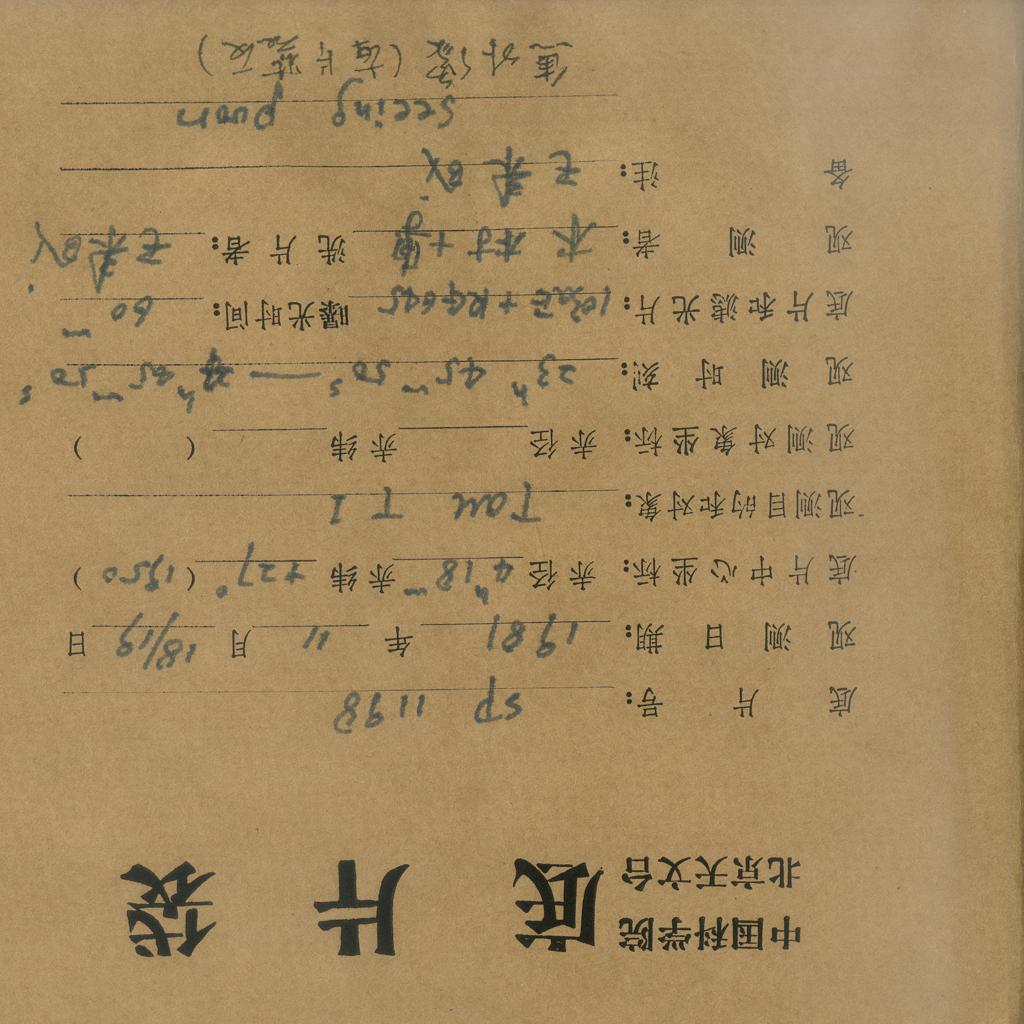 中国科学院
北京天文台
底片袋
底片号: SP 1198
观测日期: 1981 年 11 月 18/19 日
底片中心坐标: 赤径 4h18m 赤纬 +27° (1950)
观测目的和对象: Tau T 1
观测对象坐标: 赤径 赤纬 ( )
观测时刻: 23h 45m 50s — 45m 50s
底片和滤光片: 103aE+RG645 曝光时间: 60m
观测者: 洗片者:
备注:
Seeing
焦外像(直片装反)